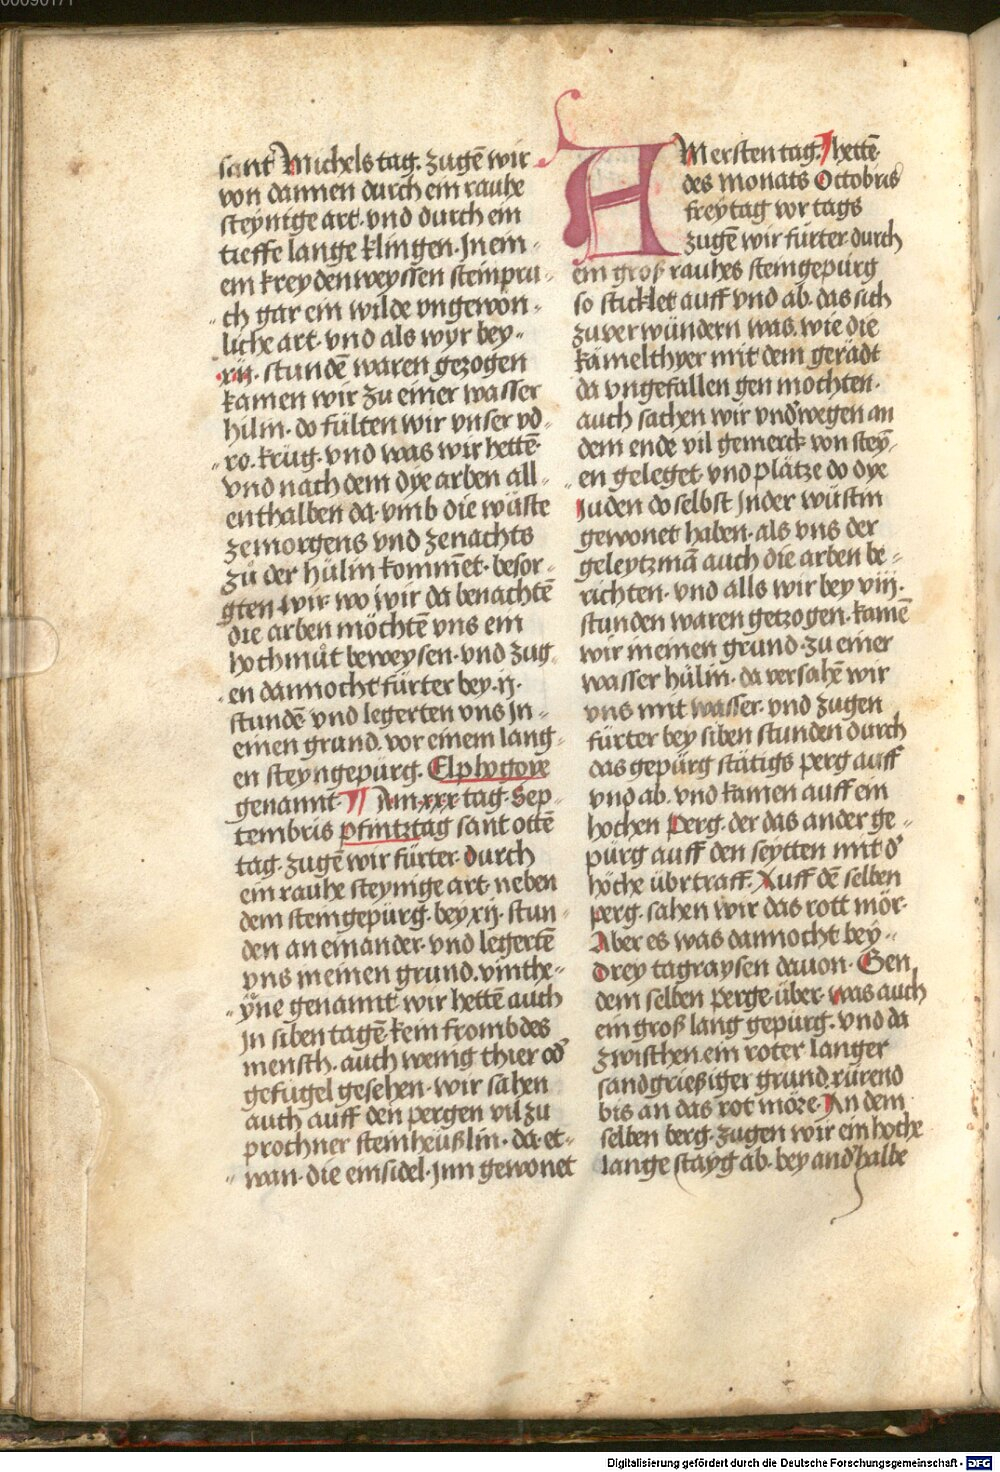 00090171
sant Michels tag. zugē wir
von dannen durch ein rauhe
steynige art. vnd durch ein
tieffe lange klingen. In ein-
em kreydenweyssen steinpru-
ch gar ein wilde vngewon-
liche art. vnd als wyr bey-
xij. stundē waren gezogen
kamen wir zu einer wasser
hilin. do fülten wir vnser vd-
ro. krüg. vnd was wir hettē.
vnd nach dem dye arben all-
enthalben da. vmb die wüste
zemorgens vnd zenachts
zů der hülin kommēt. besor-
gten wir. wo wir da benachtē
die arben möchtē vns ein
hochmůt beweysen. vnd zug-
en dannocht fürter bey. ij.
stundē vnd legerten vns In-
einen grund. vor einem lang-
en steyngepürg. Elphogore
genannt. ¶ Am. xxx. tag. Sep-
tembris pfintztag sant ottē
tag. zugē wir fürter. durch
ein rauhe steynige art. neben
dem steingepürg. bey xij. stun-
den an einander. vnd legertē
vns in einen grund. vinthe-
ÿne genannt. wir hettē auch
In siben tagē kein frombdes
mensch. auch wenig thier od̕
gefügel gesehen. wir sahen
auch auff den pergen vil zu
prochner steinheüßlin. da. et-
wan. die einsidel. Inn gewonet
AM ersten tag. hettē
des monats Octobris
freytag vor tags
zugē wir fürter durch
ein groß rauhes steingepürg
so sticklet auff vnd ab. das sich
zuver wündern was. wie die
kämelthyer mit dem gerädt
da vngefallen gen mochten.
auch sachen wir vnd̕wegen an
dem ende vil gemerck von stey-
en geleget. vnd plätze do dye
Juden do selbst In der wüstin
gewonet haben. als vns der
geleytzmā auch die arben be-
richten. vnd alls wir bey viij.
stunden waren getzogen. kamē
wir in einen grund. zu einer
wasser hülin. da versahē wir
vns mit wasser. vnd zugen
fürter bey siben stunden durch
das gepürg stätigs perg auff
vnd ab. vnd kamen auff ein
hochen perg. der das ander ge-
pürg auff den seytten mit d̕
höche übrtraff. Auff dē selben
perg. sahen wir das rott mör.
Aber es was dannocht bey-
drey tagraysen davon. Gen
dem selben perge. über. was auch
ein groß lang gepürg. vnd da
zwischen. ein roter langer
sandgrießiger grund. rürend
bis an das rot möre. An dem
selben berg. zugen wir ein hoche
lange stayg ab. bey and̕halbe
Digitalisierung gefördert durch die Deutsche Forschungsgemeinschaft - DFG